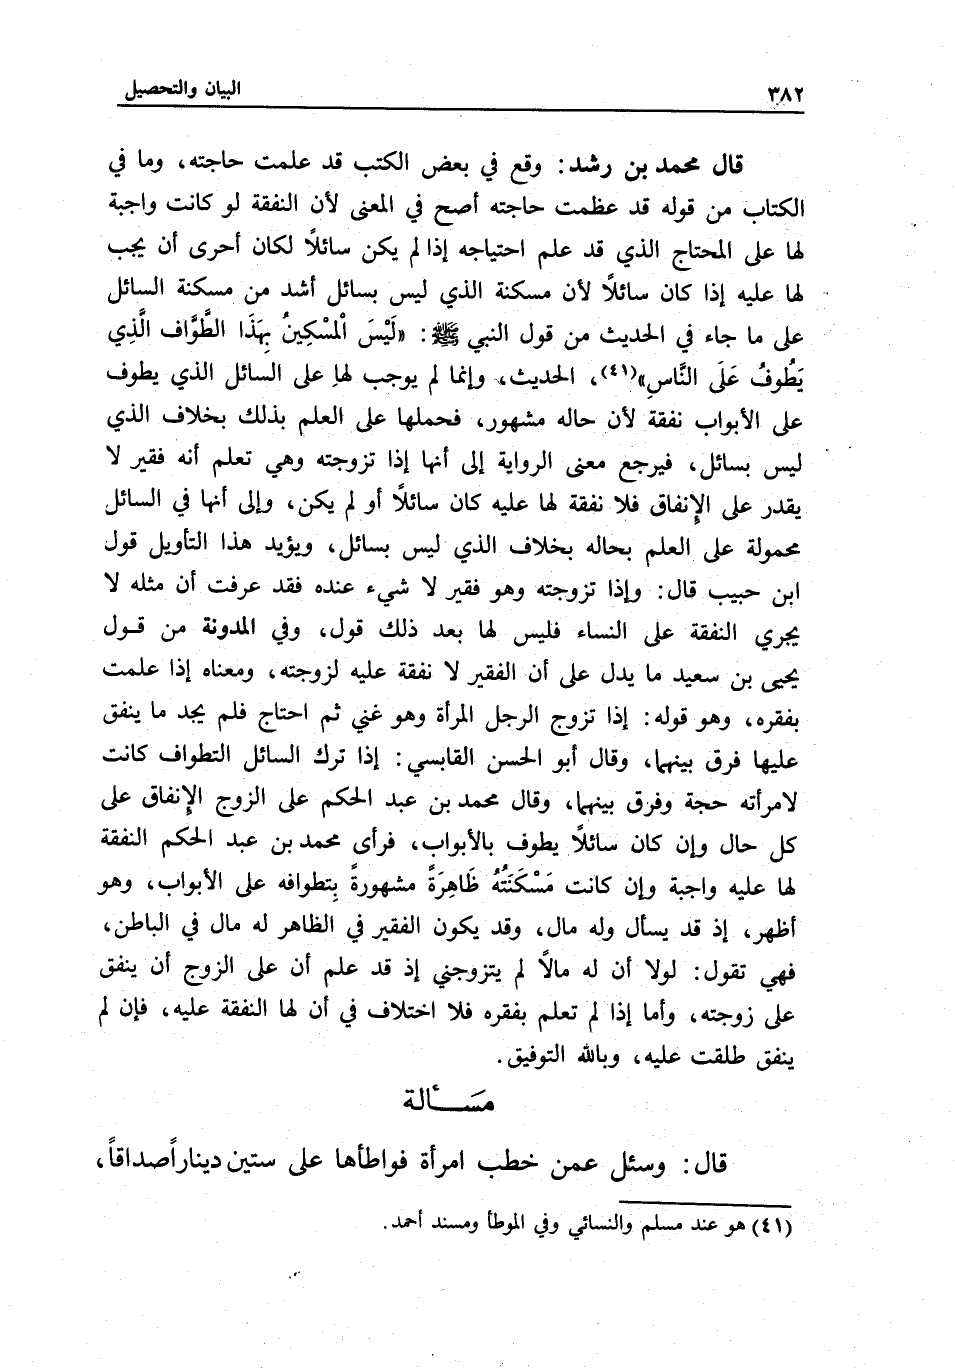 ٣٨٢ البيان والتحصيل
قال محمد بن رشد: وقع في بعض الكتب قد علمت حاجته، وما في
الكتاب من قوله قد عظمت حاجته أصح في المعنى لأن النفقة لو كانت واجبة
لها على المحتاج الذي قد علم احتياجه إذا لم يكن سائلاً لكان أحرى أن يجب
لها عليه إذا كان سائلاً لأن مسكنة الذي ليس بسائل أشد من مسكنة السائل
على ما جاء في الحديث من قول النبي ﷺ: «لَيْسَ اْلمْسْكِينُ بِهَذَا الطَّوَّاف الَّذِي
يَطُوفُ عَلَى النَّاسِ»(٤١)، الحديث، وإنما لم يوجب لها على السائل الذي يطوف
على الأبواب نفقة لأن حاله مشهور، فحملها على العلم بذلك بخلاف الذي
ليس بسائل، فيرجع معنى الرواية إلى أنها إذا تزوجته وهي تعلم أنه فقير لا
يقدر على الإنفاق فلا نفقة لها عليه كان سائلاً أو لم يكن، وإلى أنها في السائل
محمولة على العلم بحاله بخلاف الذي ليس بسائل، ويؤيد هذا التأويل قول
ابن حبيب قال: وإذا تزوجته وهو فقير لا شيء عنده فقد عرفت أن مثله لا
يجري النفقة على النساء فليس لها بعد ذلك قول، وفي المدونة من قول
يحيى بن سعيد ما يدل على أن الفقير لا نفقة عليه لزوجته، ومعناه إذا علمت
بفقره، وهو قوله: إذا تزوج الرجل المرأة وهو غني ثم احتاج فلم يجد ما ينفق
عليها فرق بينهما، وقال أبو الحسن القابسي: إذا ترك السائل التطواف كانت
لامرأته حجة وفرق بينهما، وقال محمد بن عبد الحكم على الزوج الإنفاق على
كل حال وإن كان سائلاً يطوف بالأبواب، فرأى محمد بن عبد الحكم النفقة
لها عليه واجبة وإن كانت مَسْكَنَتُهُ ظَاهِرَةً مشهورةً بِتطوافه على الأبواب، وهو
أظهر، إذ قد يسأل وله مال، وقد يكون الفقير في الظاهر له مال في الباطن،
فهي تقول: لولا أن له مالاً لم يتزوجني إذ قد علم أن على الزوج أن ينفق
على زوجته، وأما إذا لم تعلم بفقره فلا اختلاف في أن لها النفقة عليه، فإن لم
ينفق طلقت عليه، وبالله التوفيق.
مَســألة
قال: وسئل عمن خطب امرأة فواطأها على ستين ديناراً صداقاً،
(٤١) هو عند مسلم والنسائي وفي الموطأ ومسند أحمد.